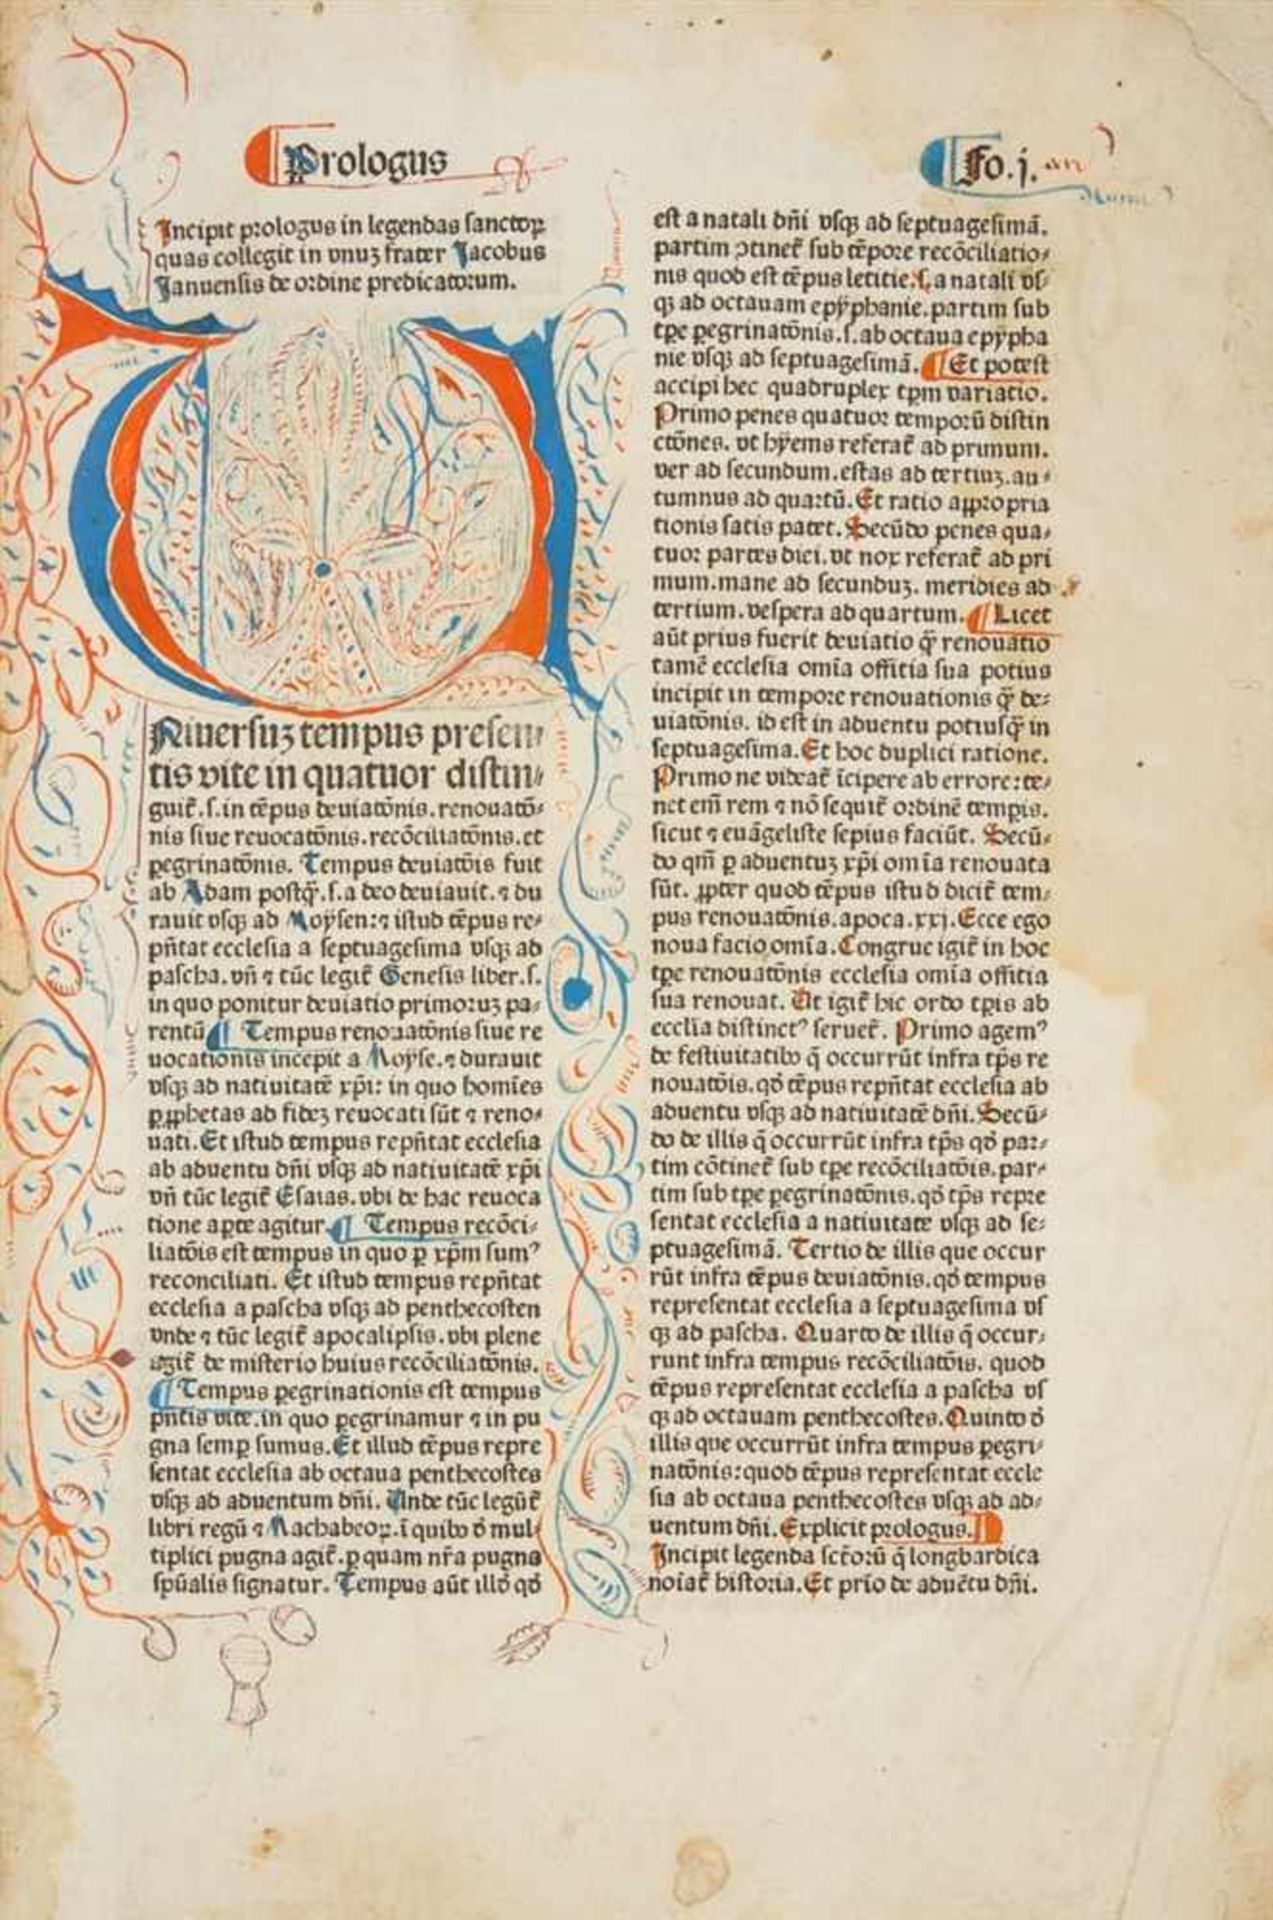 Prologus
Fo.j.
Incipit prologus in legendas sanctoꝝ
quas collegit in vnuꝫ frater Jacobus
Januensis de ordine predicatorum.
UNiuersuꝫ tempus presen⸗
tis vite in quatuor distin⸗
guit᷑.s.in tēpus deuiatōnis.renouatō⸗
nis siue reuocatōnis.recōciliatōnis.et
ꝑegrinatōnis. Tempus deuiatōis fuit
ab Adam postq̄.s.a deo deuiauit.⁊ du
rauit vsqꝫ ad Moysen:⁊ istud tēpus re⸗
pn̄tat ecclesia a septuagesima vsqꝫ ad
pascha.vn̄ ⁊ tūc legit᷑ Genesis liber.s.
in quo ponitur deuiatio primoruꝫ pa⸗
rentū ¶ Tempus renouatōnis siue re
uocationis incepit a Moyse.⁊ durauit
vsqꝫ ad natiuitatē xp̄i: in quo homīes
ꝑ ꝓphetas ad fideꝫ reuocati sūt ⁊ reno⸗
uati.Et istud tempus repn̄tat ecclesia
ab aduentu dn̄i vsqꝫ ad natiuitatē xp̄i
vn̄ tūc legit᷑ Esaias.vbi de hac reuoca
tione aꝑte agitur.¶ Tempus recōci⸗
liatōis est tempus in quo ꝑ xp̄m sumꝰ
reconciliati. Et istud tempus repn̄tat
ecclesia a pascha vsqꝫ ad penthecosten
vnde ⁊ tūc legit᷑ apocalipsis.vbi plene
agit᷑ de misterio huius recōciliatōnis.
¶ Tempus ꝑegrinationis est tempus
pn̄tis vite.in quo ꝑegrinamur ⁊ in pu
gna semꝑ sumus.Et illud tēpus repre
sentat ecclesia ab octaua penthecostes
vsqꝫ ad aduentum dn̄i. Unde tūc legūt᷑
libri regū ⁊ Machabeoꝝ.ī quibꝰ ō mul⸗
tiplici pugna agit᷑.ꝑ quam nr̄a pugna
spūalis signatur. Tempus aūt illō qō
est a natali dn̄i vsqꝫ ad septuagesimā.
partim ↄtinet᷑ sub tēpore recōciliatio⸗
nis quod est tēpus letitie.s.a natali vs⸗
qꝫ ad octauam epyphanie.partim sub
tp̄e ꝑegrinatōnis.s.ab octaua epypha
nie vsqꝫ ad septuagesimā. ¶ Et potest
accipi hec quadruplex tp̄m variatio.
Primo penes quatuor temporū distin
ctōnes. vt hyems referat᷑ ad primum.
ver ad secundum.estas ad tertiuꝫ.au⸗
tumnus ad quartū.Et ratio appropria
tionis satis patet. Secūdo penes qua⸗
tuor partes diei.vt nox referat᷑ ad pri
mum.mane ad secunduꝫ. meridies ad
tertium.vespera ad quartum.¶ Licet
aūt prius fuerit deuiatio q̄ renouatio
tamē ecclesia omīa officia sua potius
incipit in tempore renouationis q̄ de⸗
uiatōnis. id est in aduentu potiusq̄ in
septuagesima.Et hoc duplici ratione.
Primo ne videat᷑ īcipere ab errore:te⸗
net em̄ rem ⁊ nō sequit᷑ ordinē temꝑis.
sicut ⁊ euāgeliste sepius faciūt. Secū⸗
do qm̄ ꝑ aduentuꝫ xp̄i omīa renouata
sūt. ꝓpter quod tēpus istud dicit᷑ tem⸗
pus renouatōnis.apoca.xxj.Ecce ego
noua facio omīa.Congrue igit᷑ in hoc
tp̄e renouatōnis ecclesia omīa officia
sua renouat. Ut igit᷑ hic ordo tp̄is ab
ecclīa distinctꝰ seruet᷑. Primo agemꝰ
de festiuitatibꝰ q̄ occurrūt infra tp̄s re
nouatōis.qō tēpus repn̄tat ecclesia ab
aduentu vsqꝫ ad natiuitatē dn̄i.Secū⸗
do de illis q̄ occurrūt infra tp̄s qō par⸗
tim cōtinet᷑ sub tp̄e recōciliatōis.par⸗
tim sub tp̄e ꝑegrinatōnis.qō tp̄s repre
sentat ecclesia a natiuitate vsqꝫ ad se⸗
ptuagesimā. Tertio de illis que occur
rūt infra tēpus deuiatōnis.qō tempus
representat ecclesia a septuagesima vs
qꝫ ad pascha. Quarto de illis q̄ occur⸗
runt infra tempus recōciliatōis. quod
tēpus representat ecclesia a pascha vs
qꝫ ad octauam penthecostes.Quinto ō
illis que occurrūt infra tempus ꝑegri⸗
natōnis:quod tēpus representat eccle
sia ab octaua penthecostes vsqꝫ ad ad⸗
uentum dn̄i.Explicit prologus.
Incipit legenda sctōrū q̄ longbardica
noīat᷑ historia.Et prīo de aduētu dn̄i.